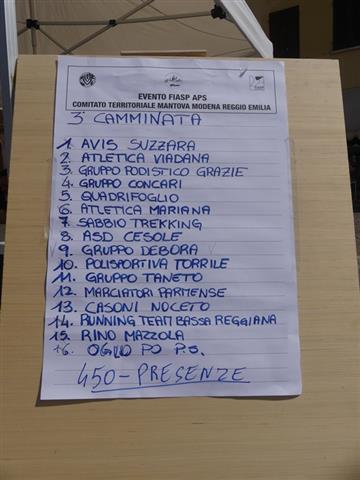 EVENTO FIASP APS
COMITATO TERRITORIALE MANTOVA MODENA REGGIO EMILIA
3° CAMMINATA
1. AVIS SUZZARA
2. ATLETICA VIADANA
3. GRUPPO PODISTICO GRAZIE
4. GRUPPO CONCARI
5. QUADRIFOGLIO
6. ATLETICA MARIANA
7. SABBIO TREKKING
8. ASD CESOLE
9. GRUPPO DEBORA
10. POLISPORTIVA TORRILE
11. GRUPPO TANETO
12. MARCIATORI PARMENSE
13. CASONI NOCETO
14. RUNNING TEAM BASSA REGGIANA
15. RINO MAZZOLA
16. OGLIO PO P.S.
450 - PRESENZE